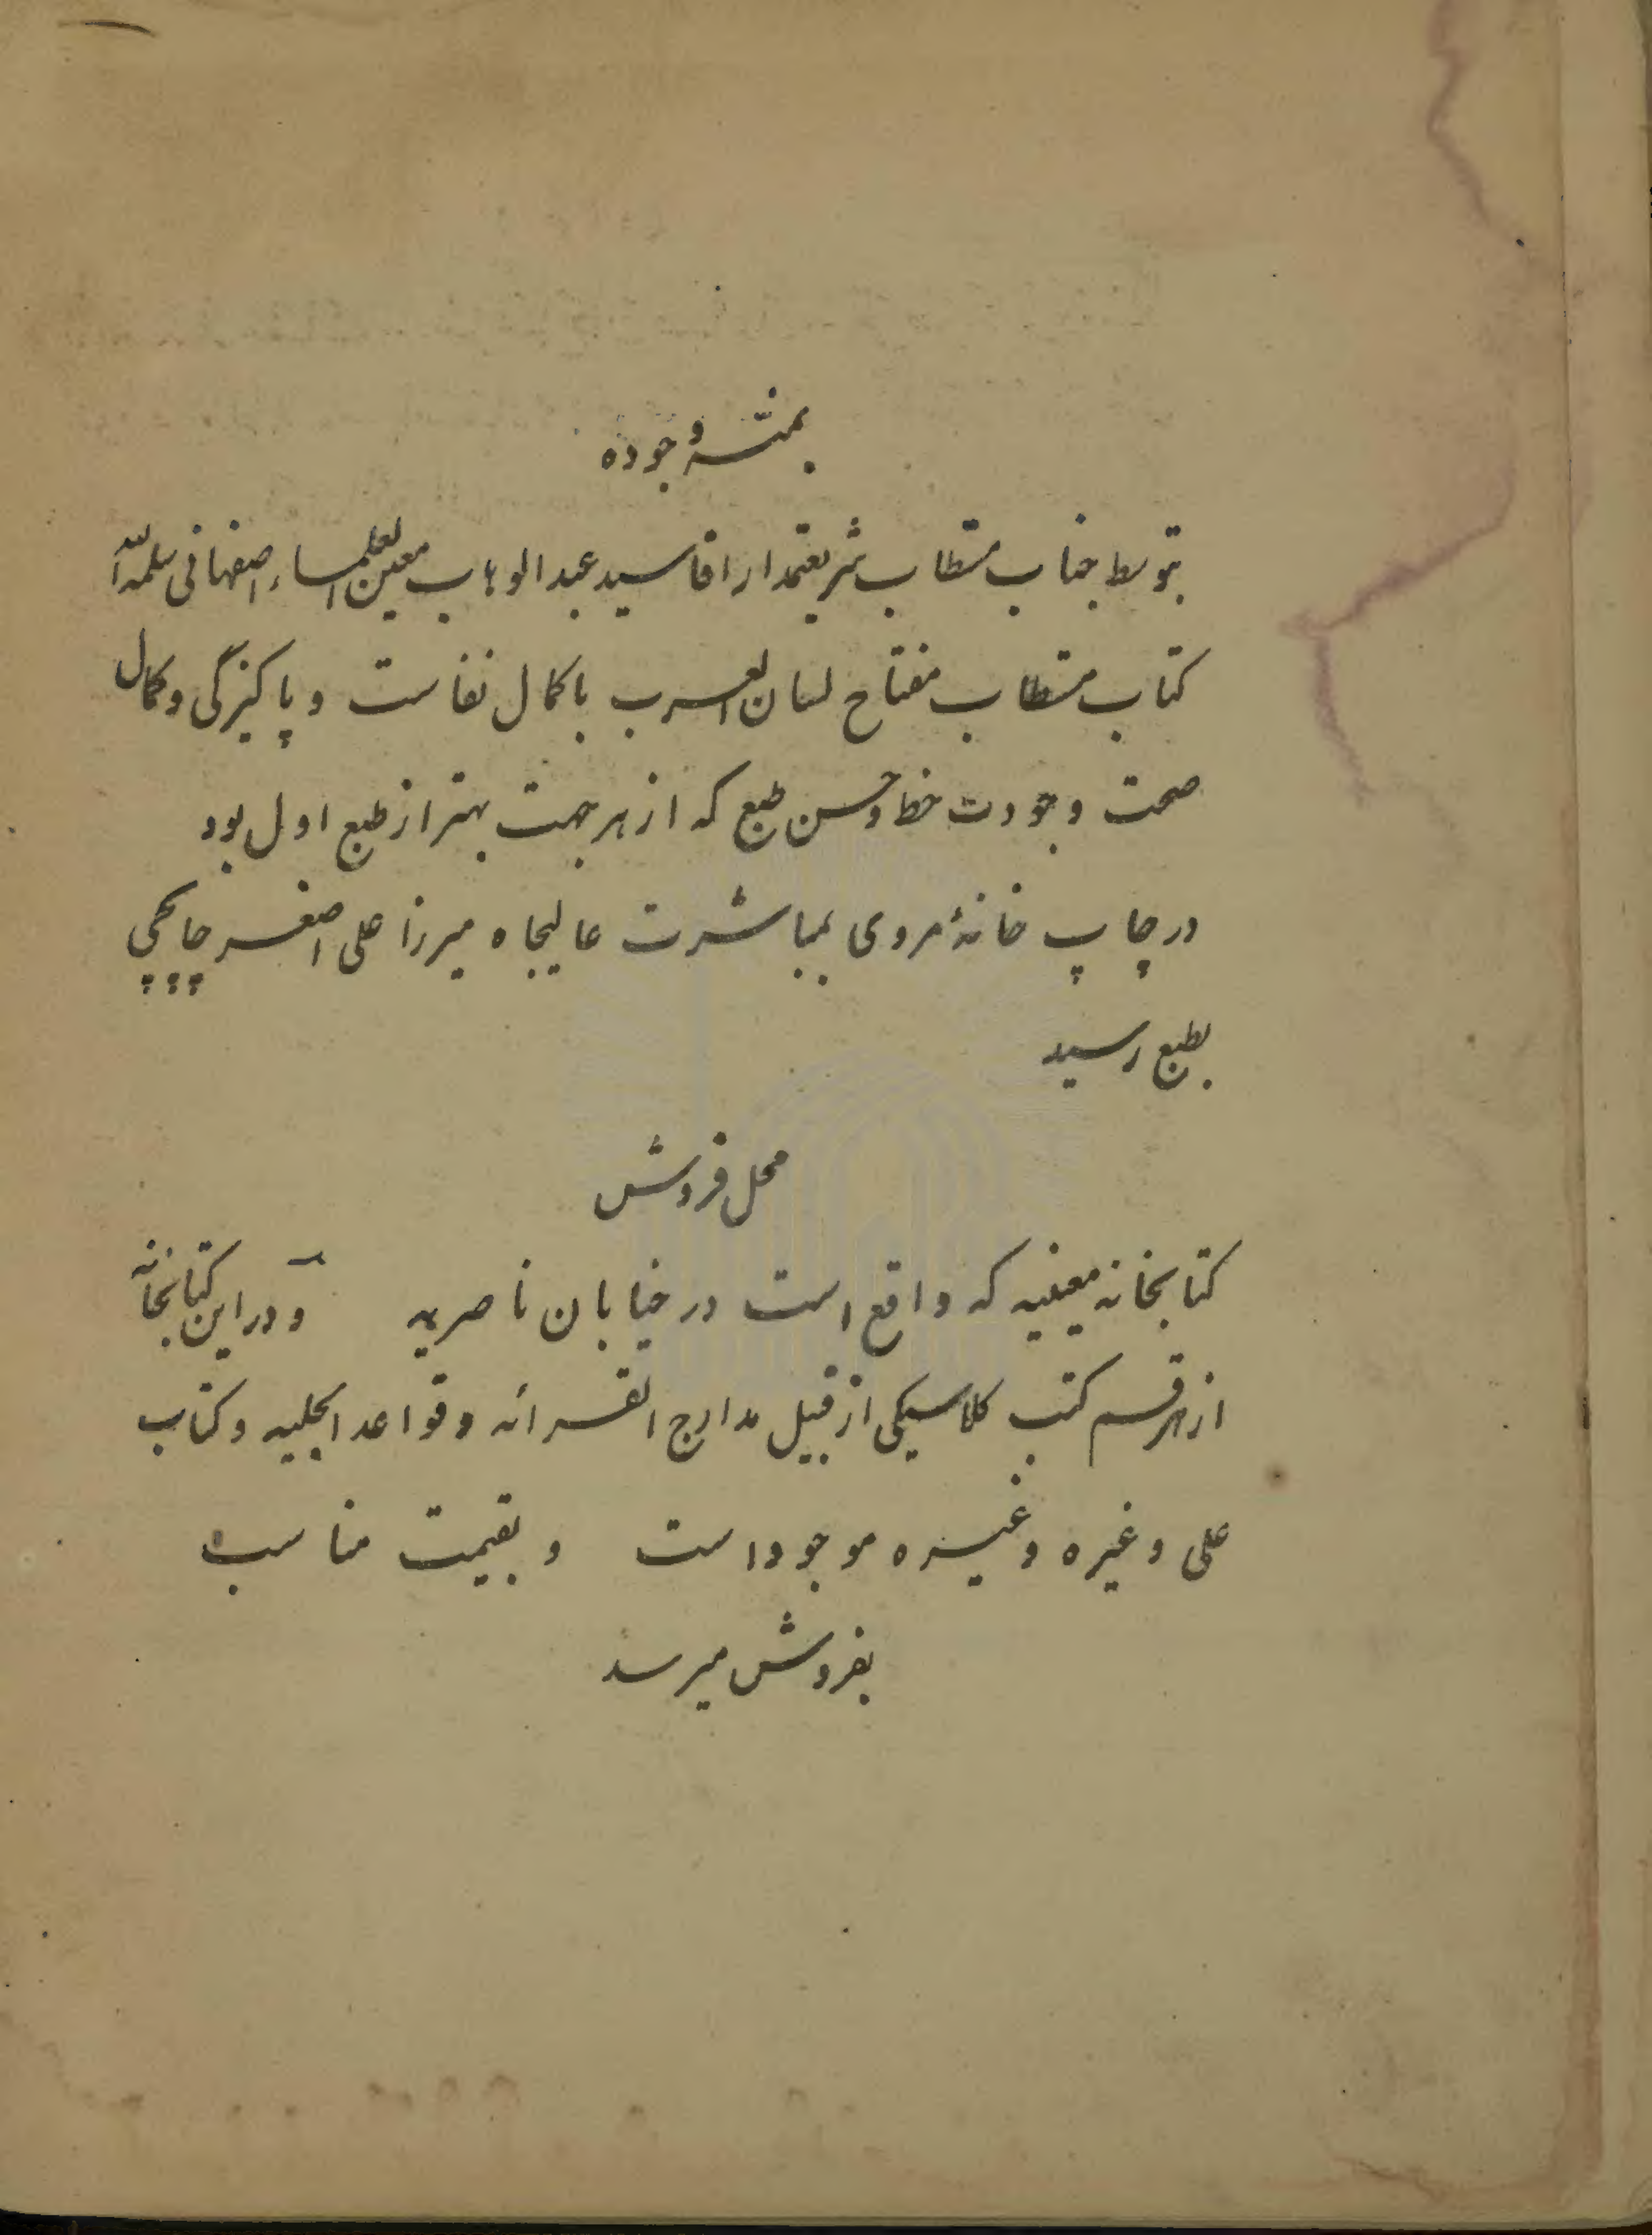 بمنّه وجوده
بتوسط جناب مستطاب شریعتمدار اقا سید عبدالوهاب معین العلماء اصفهانی سلمه الله
کتاب مستطاب مفتاح لسان العرب با کمال نفاست و پاکیزگی و کمال
صحت وجودت خط وحسن طبع که از هر جهت بهتر از طبع اول بود
در چاپ خانهٔ مروی بمباشرت عالیجاه میرزا علی اصغر چاپچی
بطبع رسید
محل فروش
کتابخانه معینیه که واقع است در خیابان ناصریه و در این کتابخانه
از هر قسم کتب کلاسیکی از قبیل مدارج القرائه وقواعد الجلیه وکتاب
علی وغیره وغیره موجود است و بقیمت مناسب
بفروش میرسد